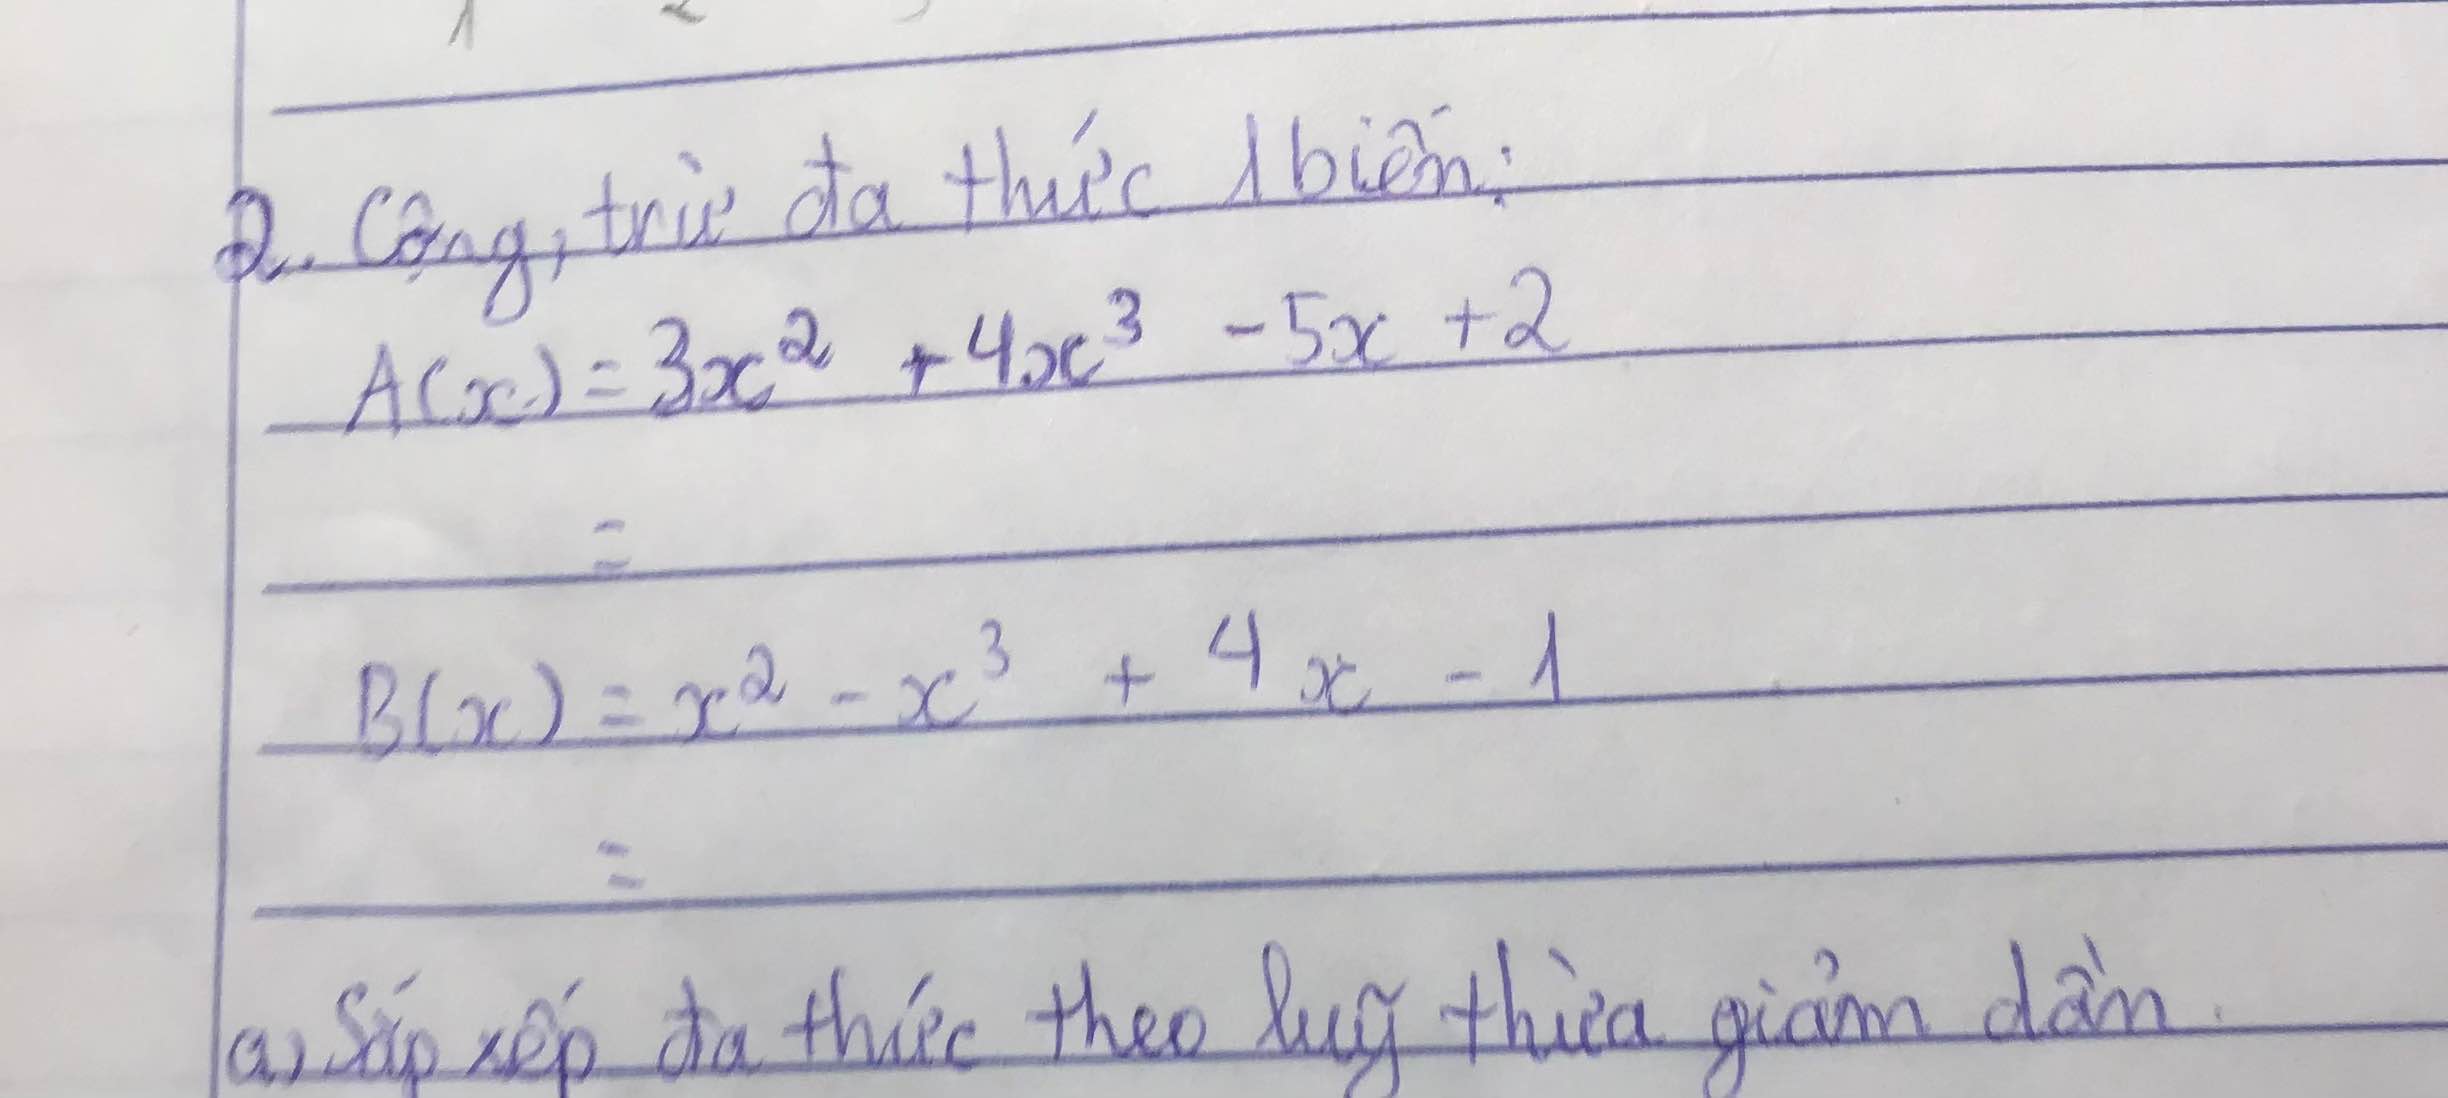 2. Cộng, trừ đa thức 1 biến:
A(x) = 3x² + 4x³ - 5x + 2
=
B(x) = x² - x³ + 4x - 1
=
a) Sắp xếp đa thức theo luỹ thừa giảm dần.